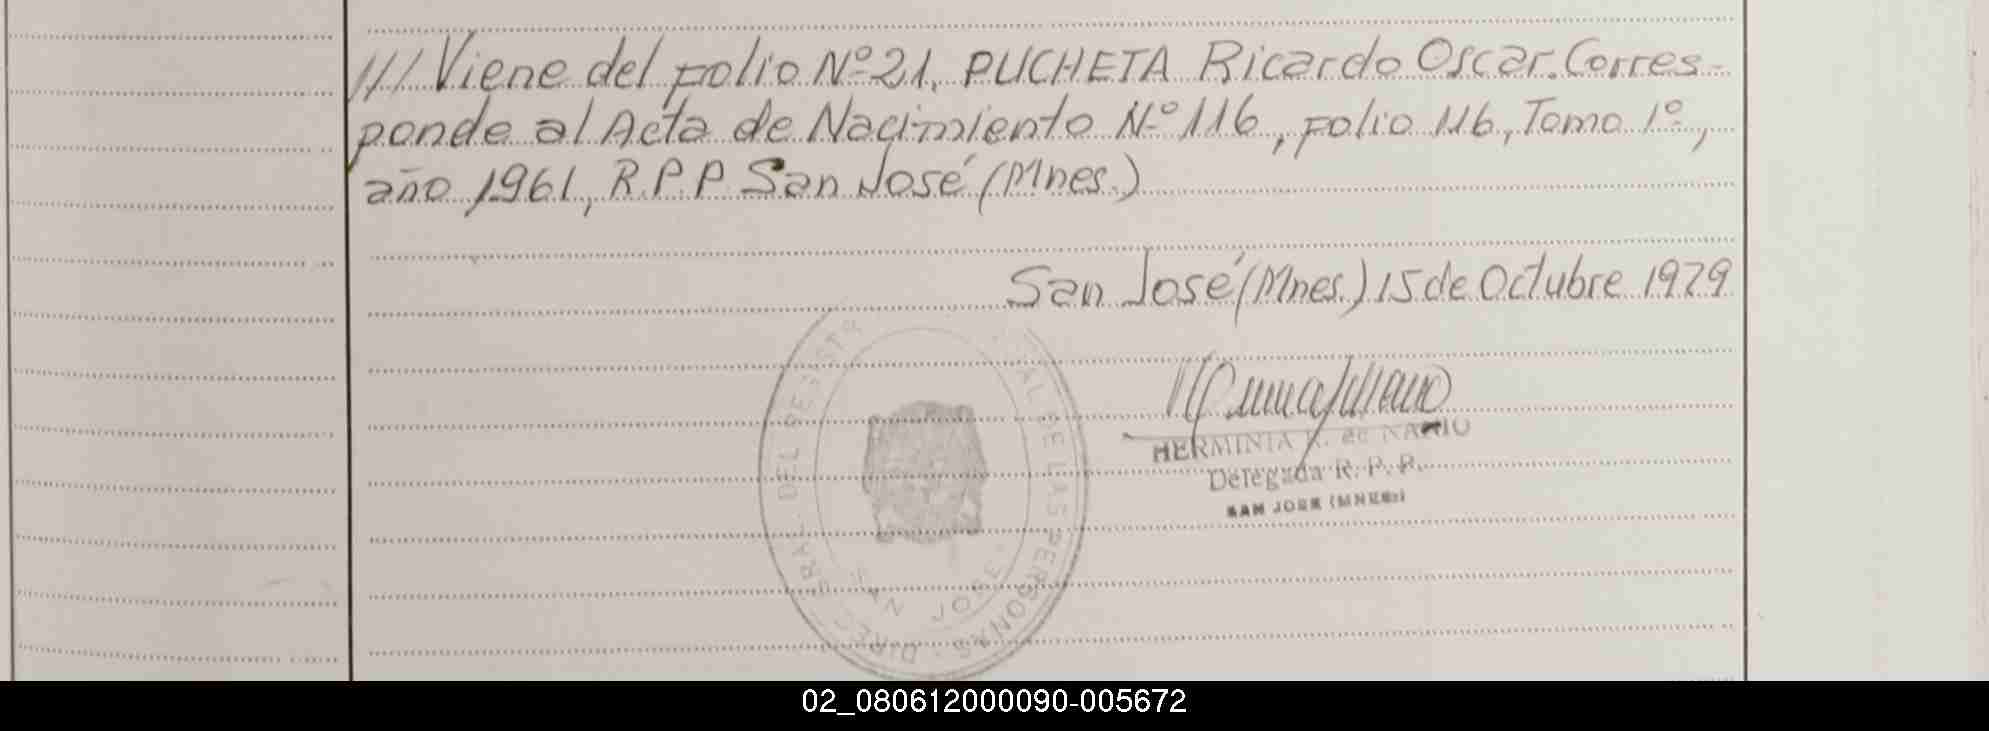 /// Viene del folio Nº 21, PUCHETA Ricardo Oscar. Corres-
ponde al Acta de Nacimiento Nº 116, folio 116, Tomo 1º,
año 1961, R.P.P San José (Mnes.)
San José (Mnes.) 15 de Octubre 1979
HERMINIA K. de NARIO
Delegada R. P. P.
SAN JOSE (MNES.)
DIREC. GRAL. DEL REGISTR AL DE LAS PERSONAS
SAN JOSE
02_080612000090-005672